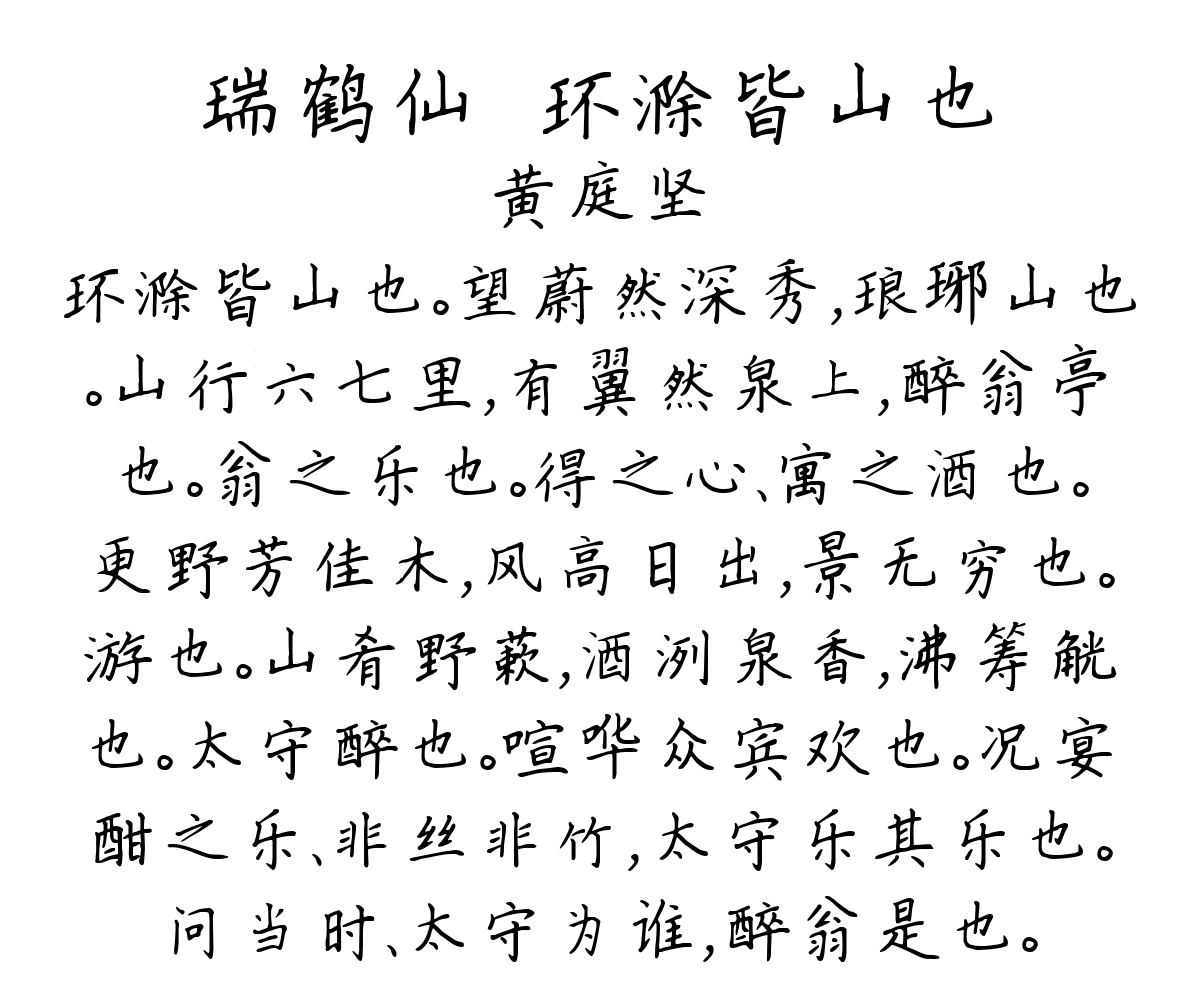 瑞鹤仙 环滁皆山也
黄庭坚
环滁皆山也。望蔚然深秀,琅琊山也
。山行六七里,有翼然泉上,醉翁亭
也。翁之乐也。得之心、寓之酒也。
更野芳佳木,风高日出,景无穷也。
游也。山肴野蔌,酒洌泉香,沸筹觥
也。太守醉也。喧哗众宾欢也。况宴
酣之乐、非丝非竹,太守乐其乐也。
问当时、太守为谁,醉翁是也。